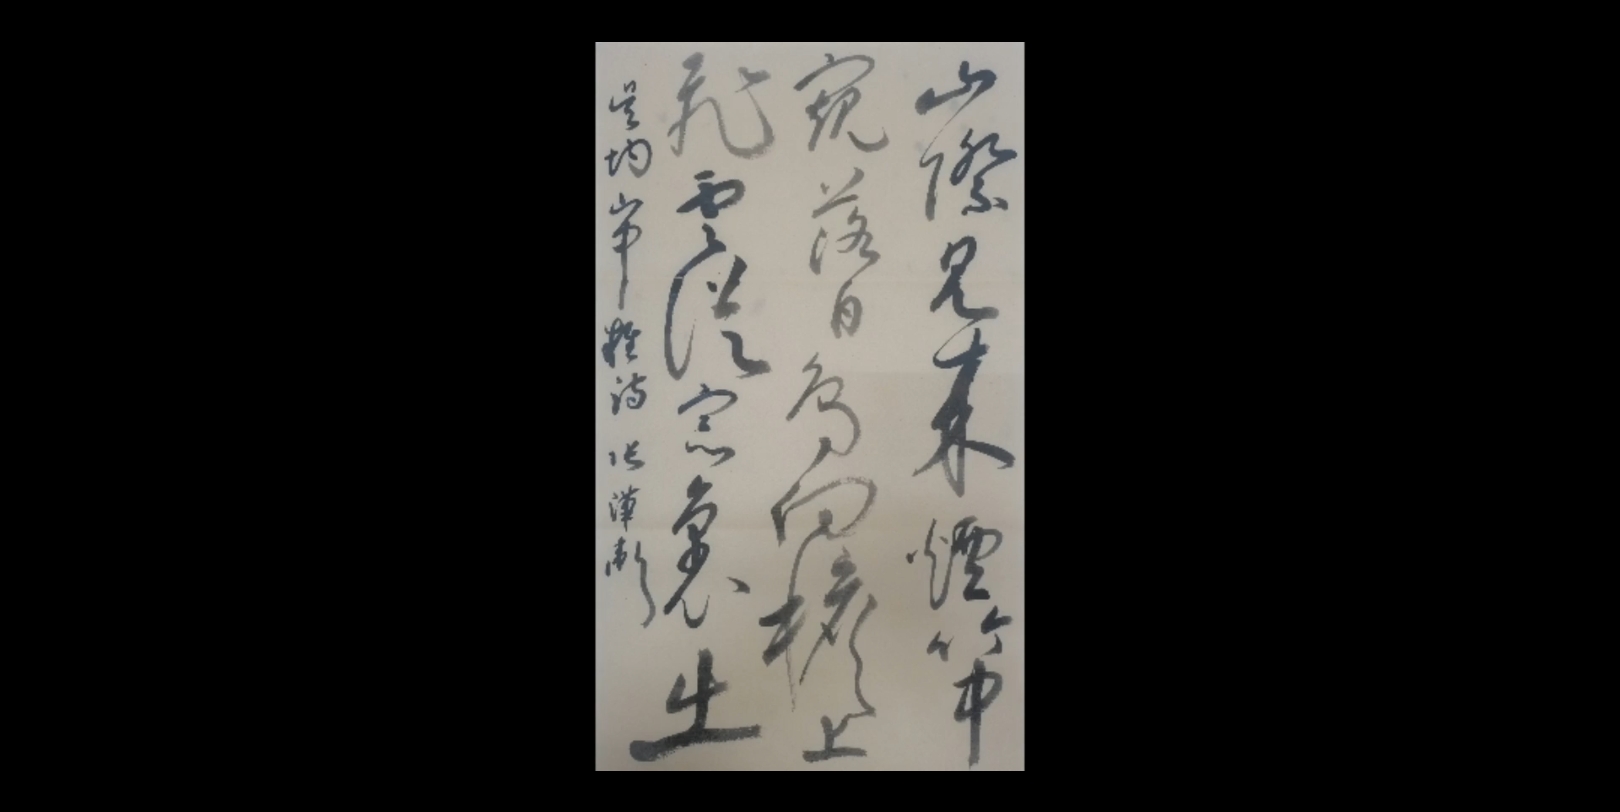 山際見來煙竹中
窺落日鳥向檐上
飛雲從窗裏出
吳均山中雜詩 張